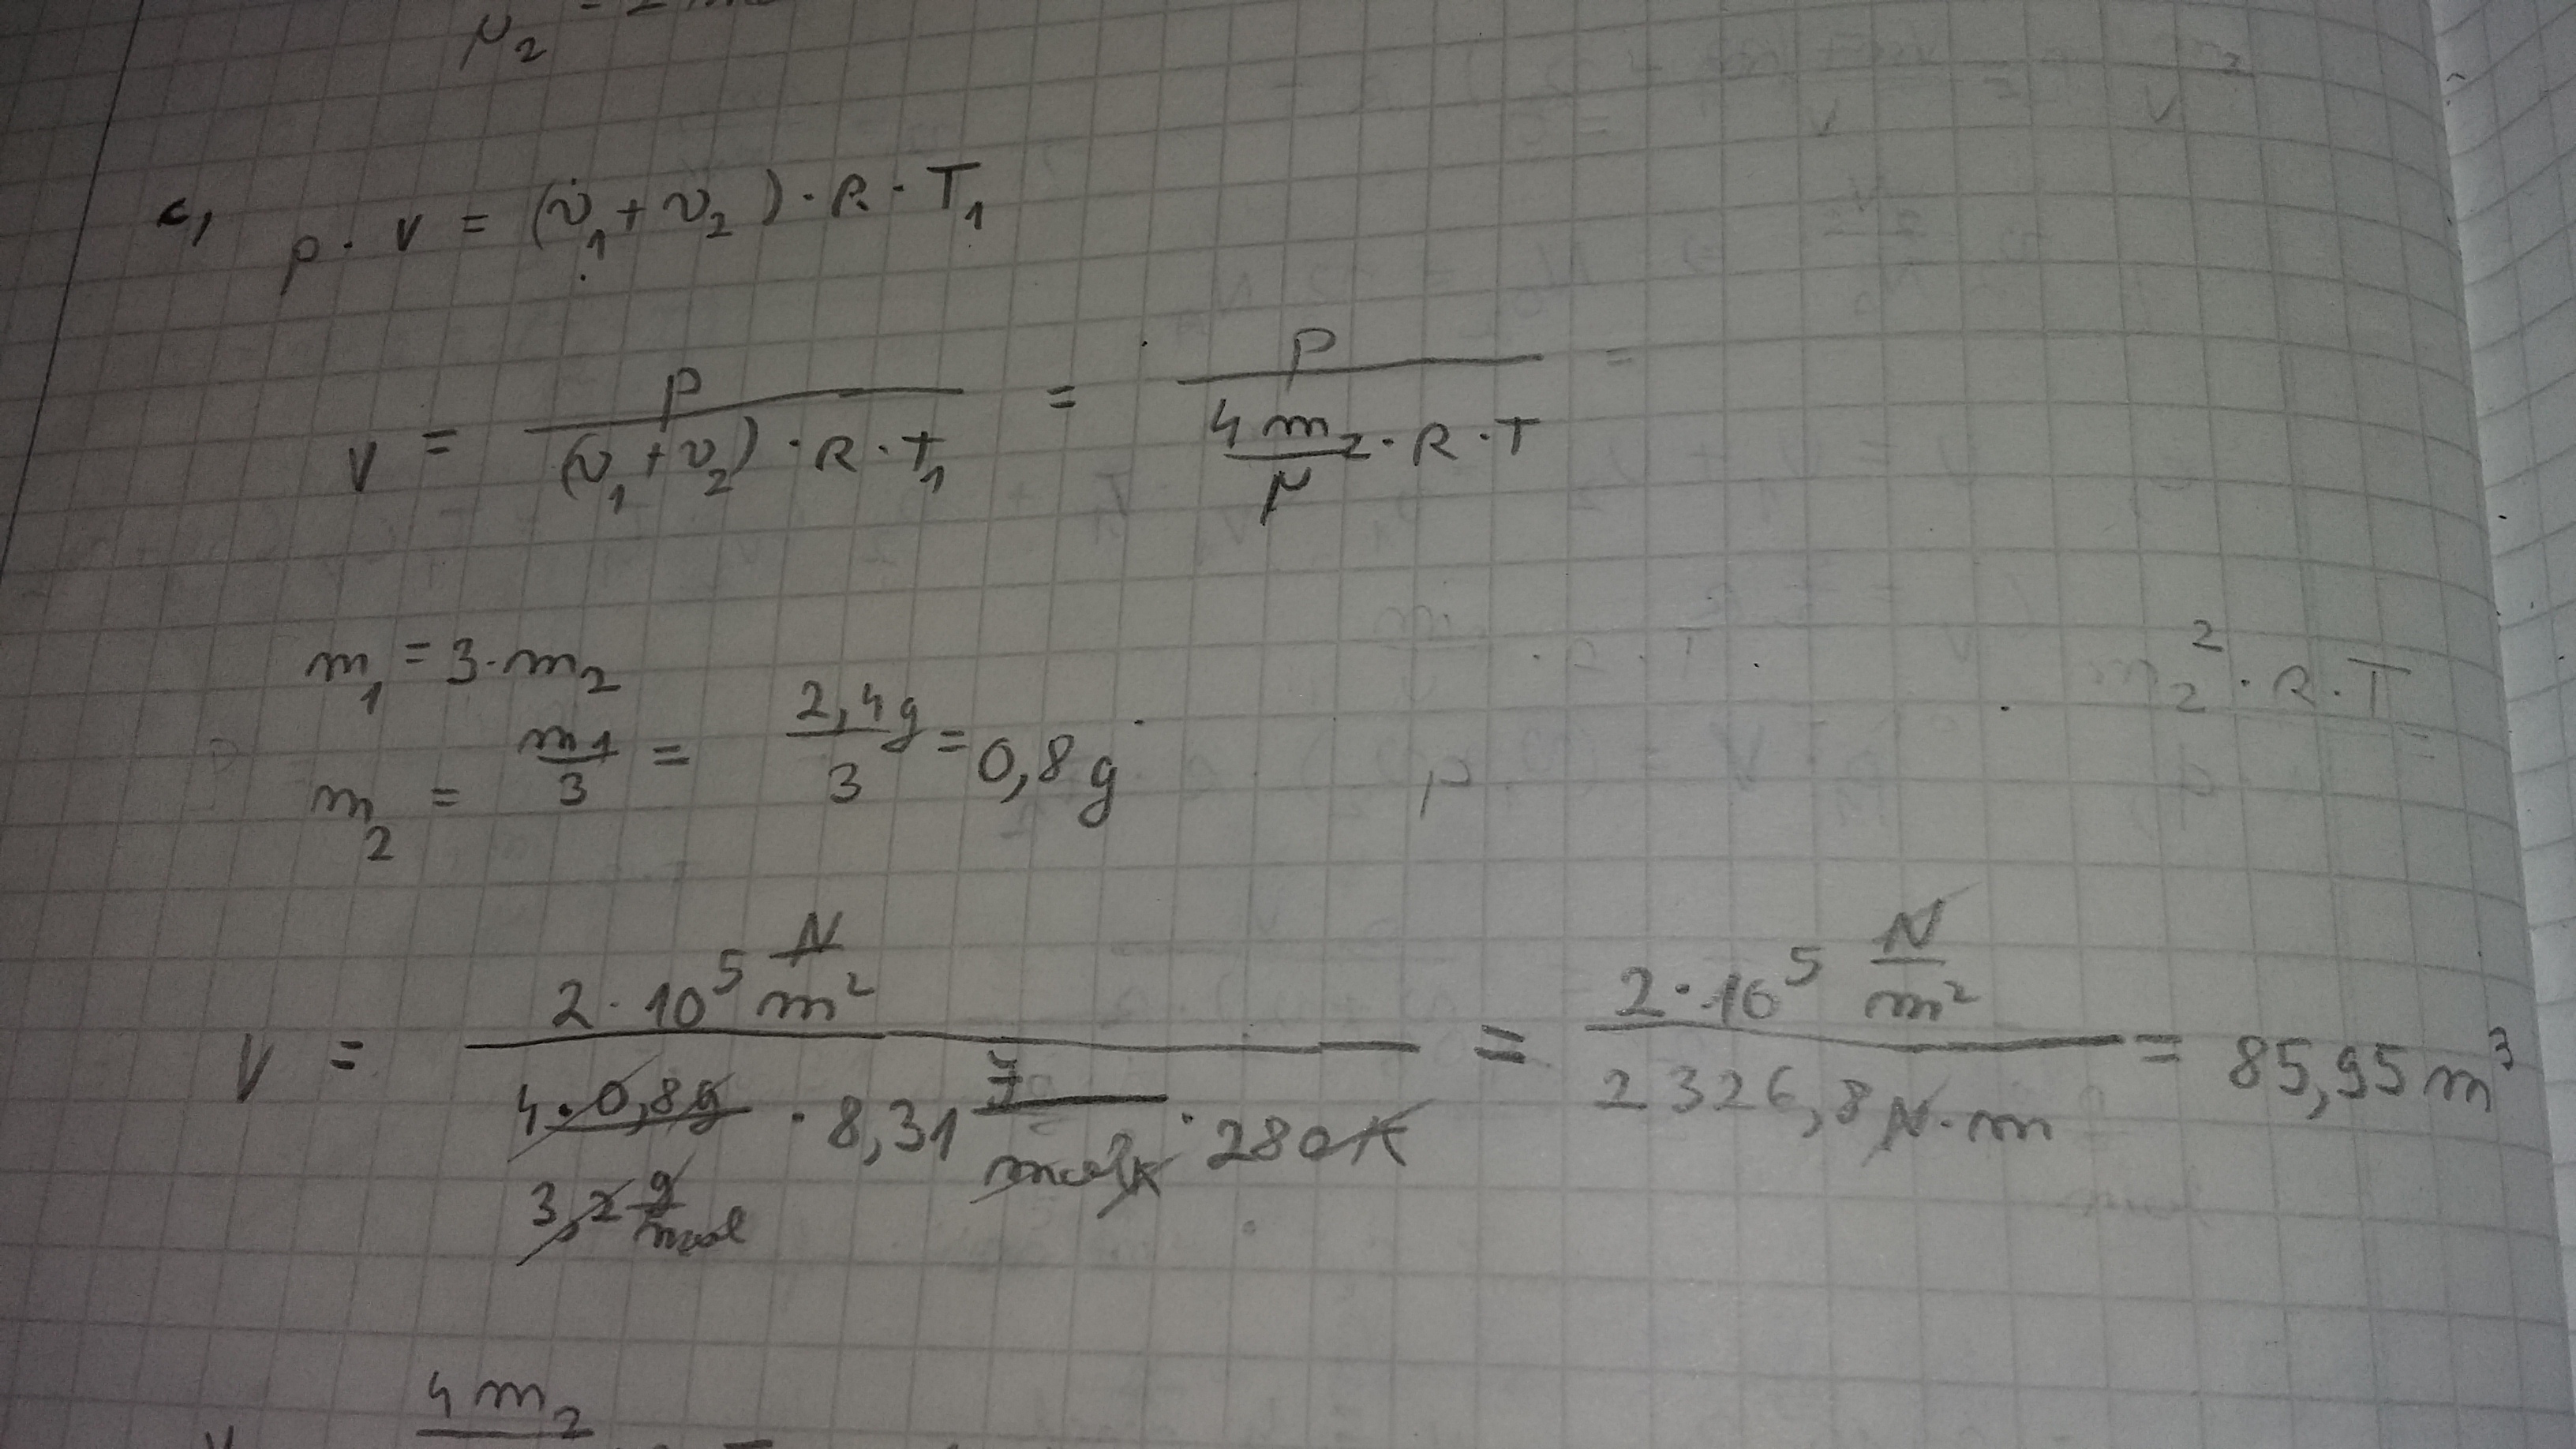 μ₂ = 2
c, p · V = (ν₁ + ν₂) · R · T₁
V = p / ((ν₁ + ν₂) · R · T₁) = p / (4 m₂ / μ · R · T) =
m₁ = 3 · m₂
m₂ = m1 / 3 = 2,4 g / 3 = 0,8 g
m₂² · R · T
V = 2 · 10⁵ N/m² / (4 · 0,8 g / 3,2 g/mol · 8,31 J/mol K · 280 K) = 2 · 10⁵ N/m² / 2326,8 N · m = 85,95 m³
4 m₂